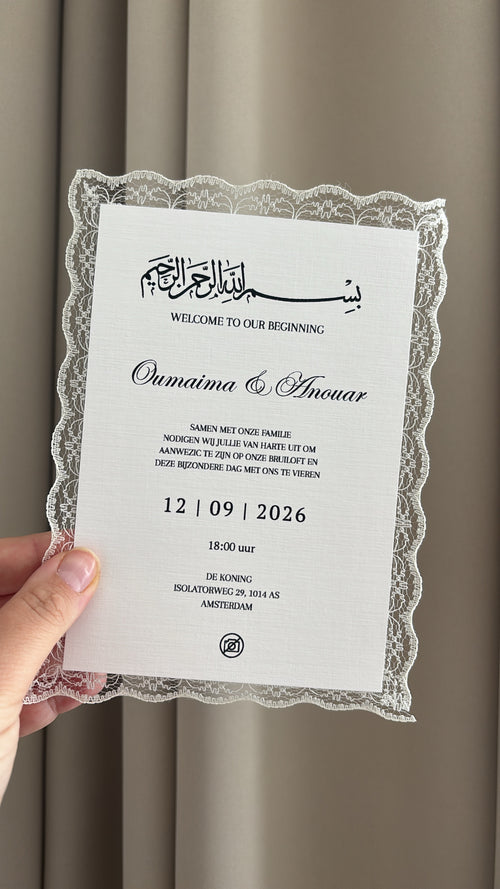 بِسْمِ اللهِ الرَّحْمٰنِ الرَّحِيْمِ
WELCOME TO OUR BEGINNING
Oumaima & Anouar
SAMEN MET ONZE FAMILIE
NODIGEN WIJ JULLIE VAN HARTE UIT OM
AANWEZIC TE ZIJN OP ONZE BRUILOFT EN
DEZE BIJZONDERE DAG MET ONS TE VIEREN
12 | 09 | 2026
18:00 uur
DE KONING
ISOLATORWEG 29, 1014 AS
AMSTERDAM